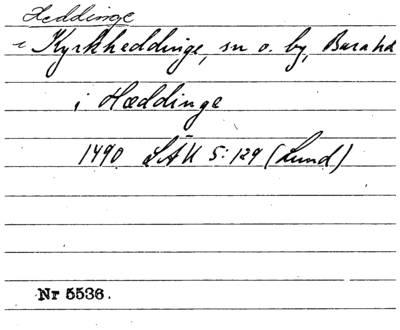 Heddinge
i Kyrkheddinge, sn o. by, Bara hd
i Hæddinge
1490 LÄU 5:129 (Lund)
Nr 5536.